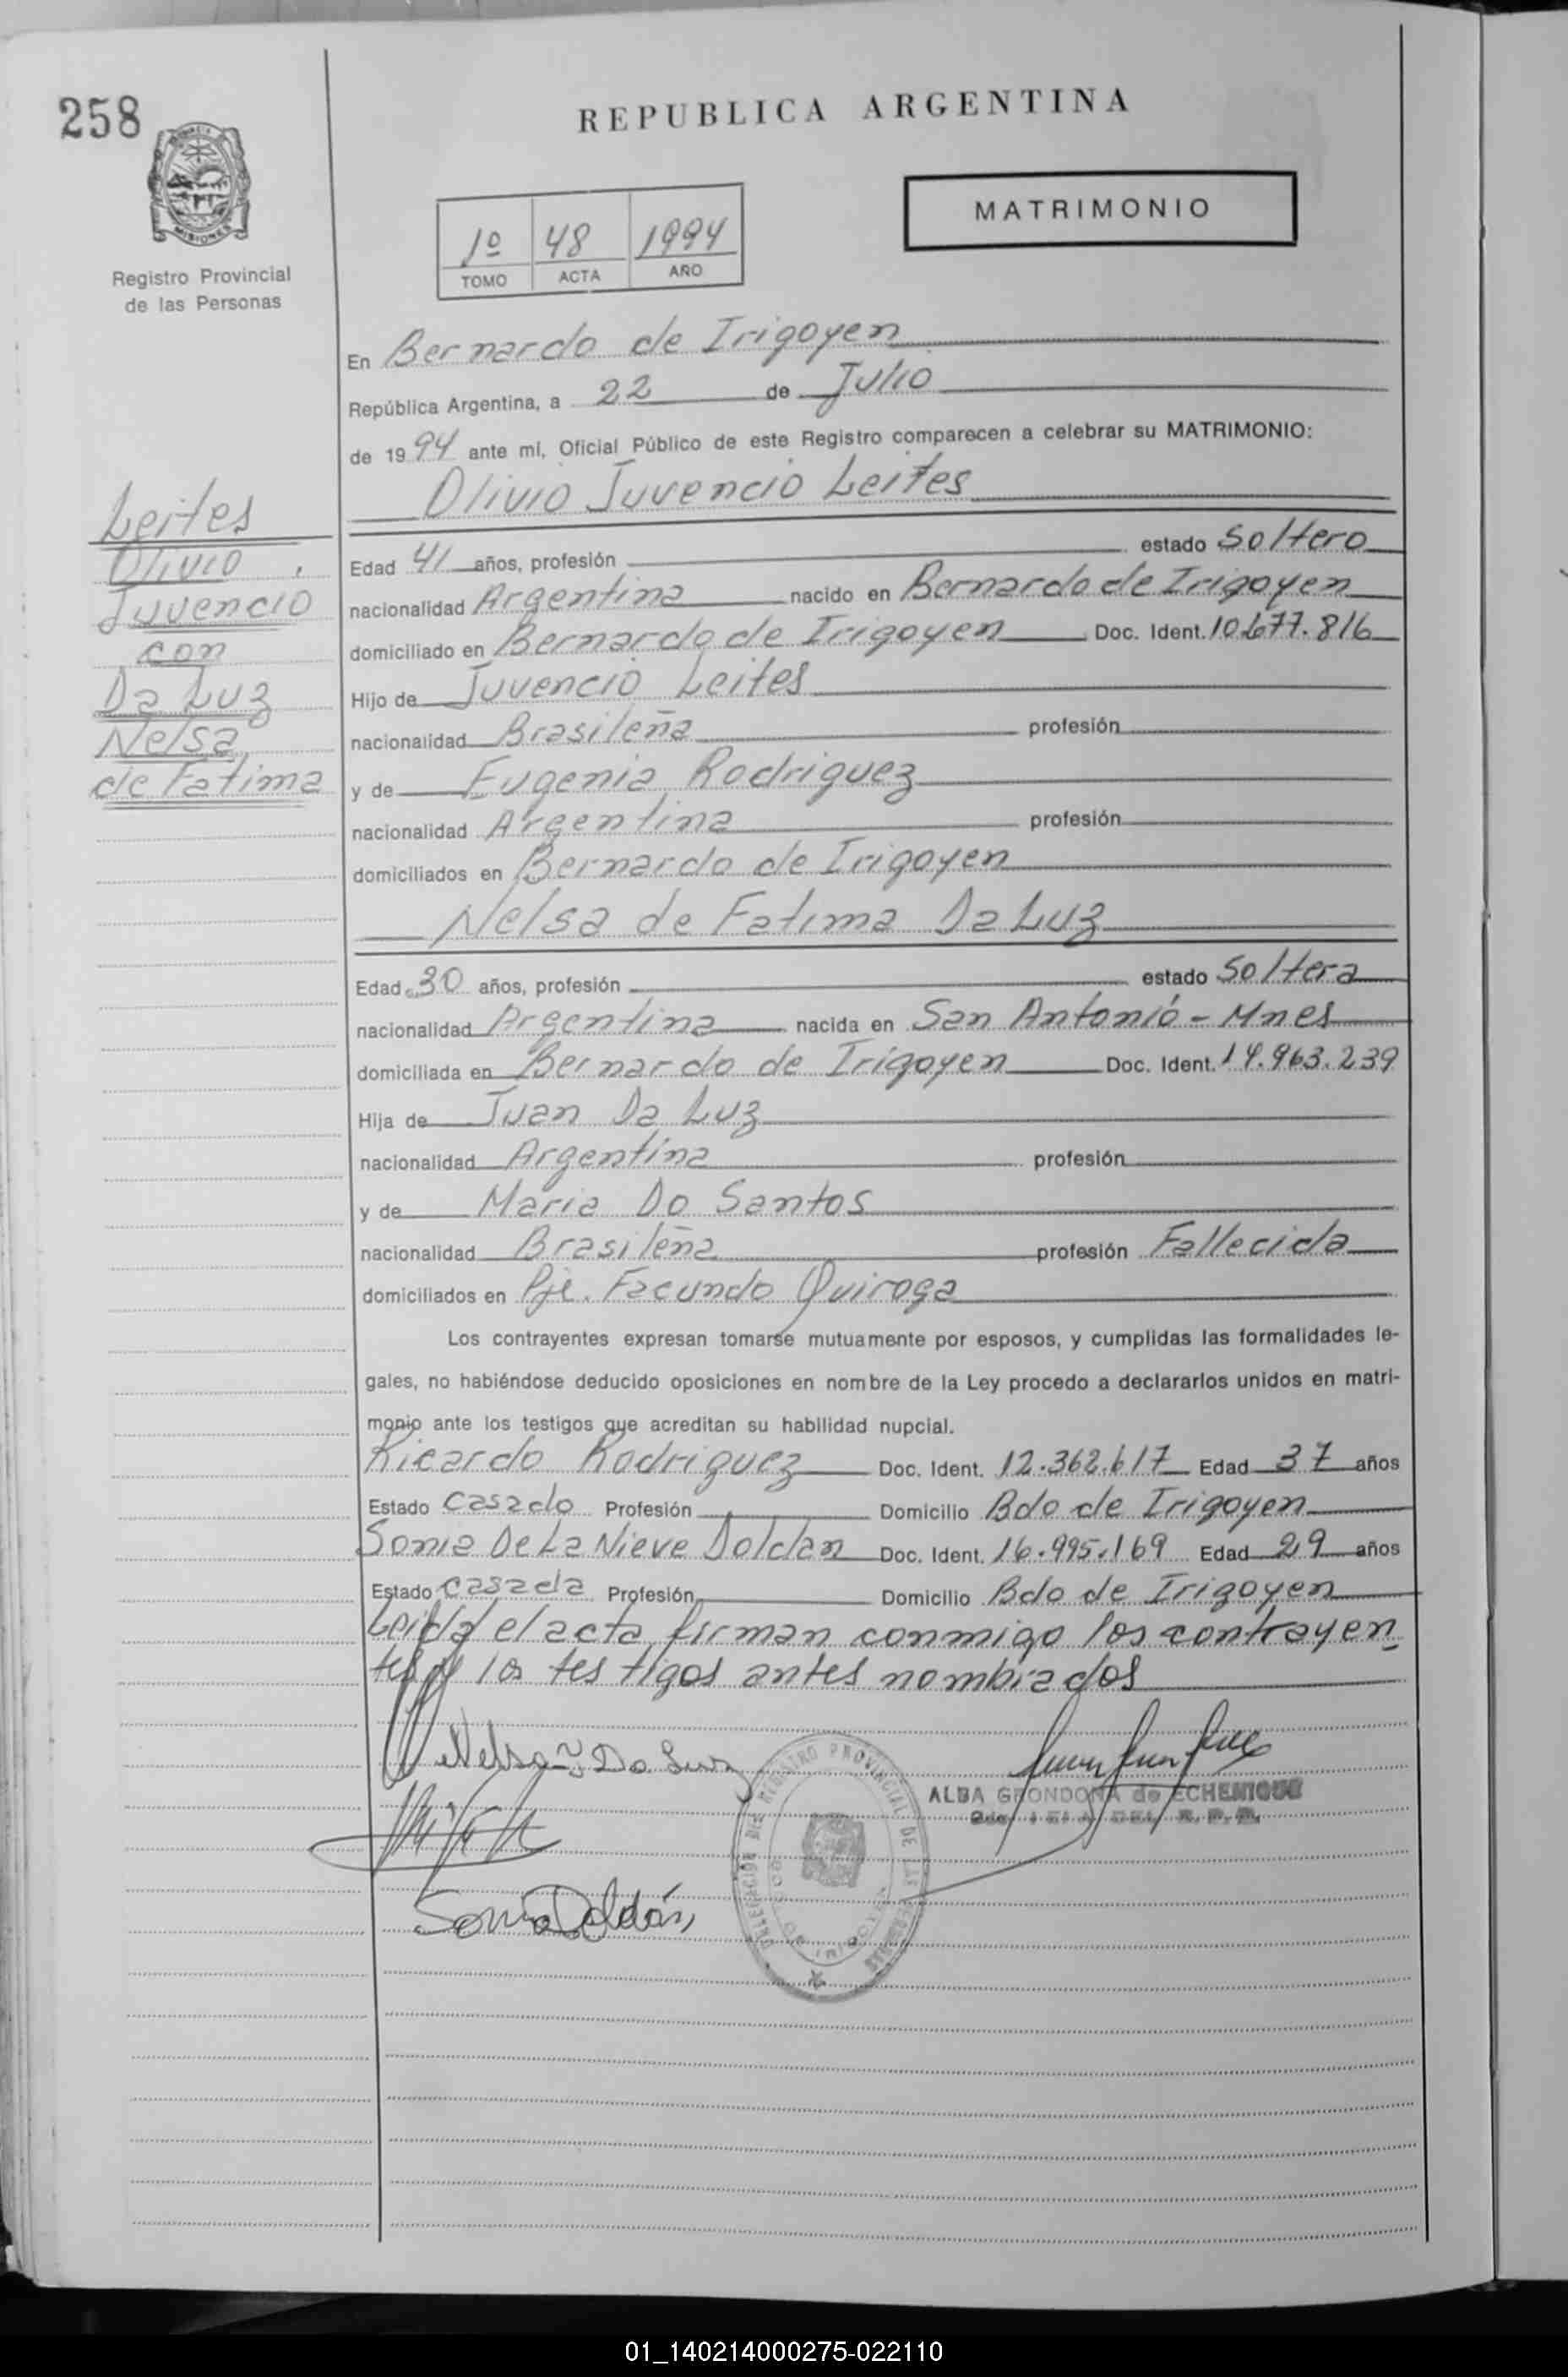 258
REPUBLICA ARGENTINA
MATRIMONIO
MISIONES
Registro Provincial
de las Personas
1º 48 1994
TOMO ACTA AÑO
En Bernardo de Irigoyen
República Argentina, a 22 de Julio
de 1994 ante mi, Oficial Público de este Registro comparecen a celebrar su MATRIMONIO:
Olivio Juvencio Leites
Leites
Olivio
Juvencio
con
Da Luz
Nelsa
de Fatima
Edad 41 años, profesión estado Soltero
nacionalidad Argentina nacido en Bernardo de Irigoyen
domiciliado en Bernardo de Irigoyen Doc. Ident. 10.677.816
Hijo de Juvencio Leites
nacionalidad Brasileña profesión
y de Eugenia Rodriguez
nacionalidad Argentina profesión
domiciliados en Bernardo de Irigoyen
Nelsa de Fatima Da Luz
Edad 30 años, profesión estado Soltera
nacionalidad Argentina nacida en San Antonió - Mnes
domiciliada en Bernardo de Irigoyen Doc. Ident. 14.963.239
Hija de Juan Da Luz
nacionalidad Argentina profesión
y de Maria Do Santos
nacionalidad Brasileña profesión Fallecida
domiciliados en Pje. Facundo Quiroga
Los contrayentes expresan tomarse mutuamente por esposos, y cumplidas las formalidades le-
gales, no habiéndose deducido oposiciones en nombre de la Ley procedo a declararlos unidos en matri-
monio ante los testigos que acreditan su habilidad nupcial.
Ricardo Rodriguez Doc. Ident. 12.362.617 Edad 37 años
Estado Casado Profesión Domicilio Bdo de Irigoyen
Sonia De La Nieve Doldan Doc. Ident. 16.995.169 Edad 29 años
Estado casada Profesión Domicilio Bdo de Irigoyen
Leida el acta, firman conmigo los contrayen
tes y los testigos antes nombrados
Nelsa Da Luz
ALBA GRONDONA de ECHENIQUE
DELEGACION DEL REGISTRO PROVINCIAL DE LAS PERSONAS
BDO DE IRIGOYEN
Sonia Doldán
01_140214000275-022110